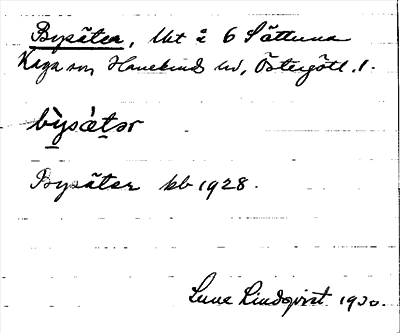 Bysäter, lht å 6 Sättuna
Kaga sn Hanekinds hd, Östergötl. l.
bỳsæ̀tər
Bysäter kb 1928.
Sune Lindqvist 1930.